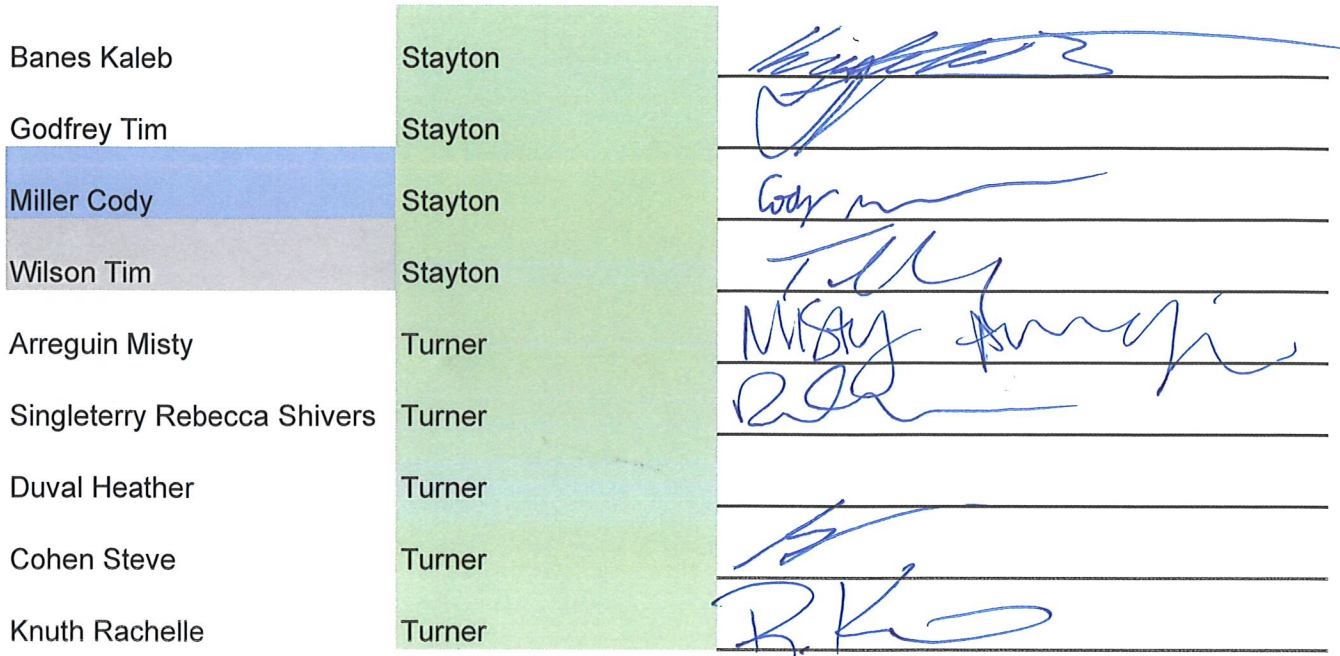 Banes Kaleb Stayton
Godfrey Tim Stayton
Miller Cody Stayton Cody
Wilson Tim Stayton
Arreguin Misty Turner Misty
Singleterry Rebecca Shivers Turner
Duval Heather Turner
Cohen Steve Turner
Knuth Rachelle Turner R. K